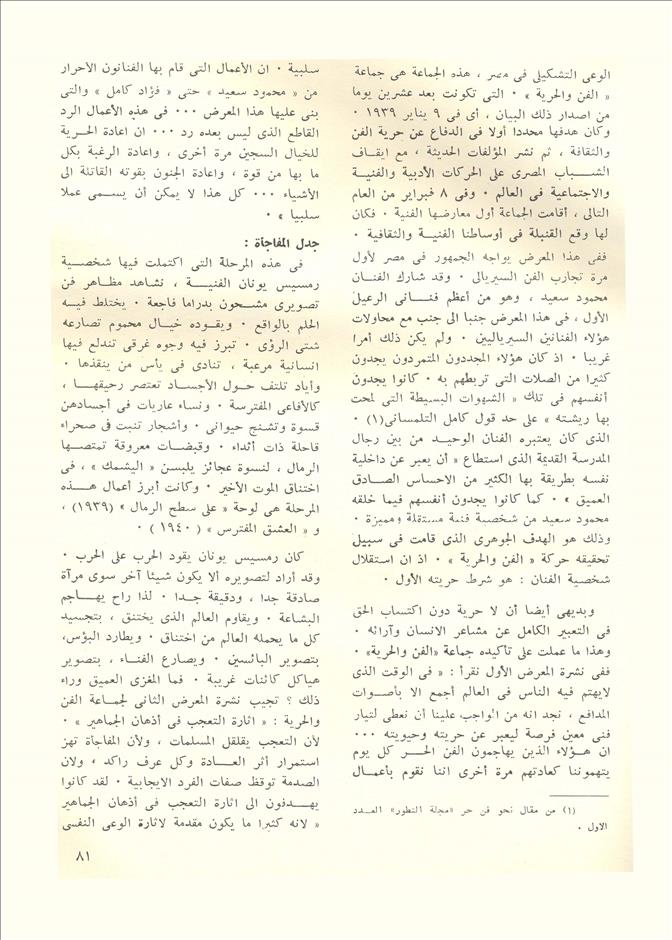 الوعى التشكيلى فى مصر ، هذه الجماعة هى جماعة
« الفن والحرية » · التى تكونت بعد عشرين يوما
من اصدار ذلك البيان ، أى فى ٩ يناير ١٩٣٩ ·
وكان هدفها محددا أولا فى الدفاع عن حرية الفن
والثقافة ، ثم نشر المؤلفات الحديثة ، مع ايقـاف
الشـــباب المصرى على الحركات الأدبية والفنيـة
والاجتماعية فى العالم · وفى ٨ فبراير من العام
التالى ، أقامت الجماعة أول معارضها الفنية · فكان
لها وقع القنبلة فى أوساطنا الفنيـــة والثقافية ·
ففى هذا المعرض يواجه الجمهور فى مصر لأول
مرة تجارب الفن السيريالى · وقد شارك الفنـان
محمود سعيد ، وهو من أعظم فنـــانى الرعيل
الأول ، فى هذا المعرض جنبا الى جنب مع محاولات
هؤلاء الفنانين السيرياليين · ولم يكن ذلك أمرا
غريبا · اذ كان هؤلاء المجددون المتمردون يجدون
كثيرا من الصلات التى تربطهم به · كانوا يجدون
أنفسهم فى تلك « الشهوات البسيطة التى لمحت
بها ريشته » على حد قول كامل التلمسانى(١) ·
الذى كان يعتبره الفنان الوحيـد من بين رجال
المدرسة القديمة الذى استطاع « أن يعبر عن داخلية
نفسه بطريقة بها الكثير من الاحساس الصـادق
العميق » · كما كانوا يجدون أنفسهم فيما خلقه
محمود سعيد من شخصية فنية مستقلة ومميزة ·
وذلك هو الهدف الجوهرى الذى قامت فى سبيل
تحقيقه حركة « الفن والحرية » · اذ ان استقلال
شخصية الفنان : هو شرط حريته الأول ·
وبديهى أيضا أن لا حرية دون اكتساب الحق
فى التعبير الكامل عن مشاعر الانسان وآرائه ·
وهذا ما عملت على تأكيده جماعة «الفن والحرية» ·
ففى نشرة المعرض الأول نقرأ : « فى الوقت الذى
لايهتم فيه الناس فى العالم أجمع الا بأصـوات
المدافع ، نجد انه من الواجب علينا أن نعطى لتيار
فنى معين فرصة ليعبر عن حريته وحيويته ···
ان هـؤلاء الذين يهاجمون الفن الحــر كل يوم
يتهموننا كعادتهم مرة أخرى اننا نقوم بأعمـال
(١) من مقال نحو فن حر «مجلة التطور» العـدد
الاول ·
سلبية · ان الأعمال التى قام بها الفنانون الأحرار
من « محمود سعيد » حتى « فؤاد كامل » والتى
بنى عليها هذا المعرض ··· فى هذه الأعمال الرد
القاطع الذى ليس بعده رد ··· ان اعادة الحـرية
للخيال السجين مرة أخرى ، واعادة الرغبة بكل
ما بها من قوة ، واعادة الجنون بقوته القاتلة الى
الأشياء ··· كل هذا لا يمكن أن يســمى عملا
سلبيا » ·
جدل المفاجأة :
فى هذه المرحلة التى اكتملت فيها شخصـية
رمسيس يونان الفنيــة ، نشاهد مظاهر فن
تصويرى مشـحون بدراما فاجعة · يختلط فيـه
الحلم بالواقع · ويقوده خيـال محموم تصارعه
شتى الرؤى · تبرز فيه وجوه غرقى تندلع فيها
انسانية مرعبة ، تنادى فى يأس من ينقذها ·
وأياد تلتف حـول الأجساد تعتصر رحيقهـا ،
كالأفاعى المفترسة · ونساء عاريات فى أجسادهن
قسوة وتشنج حيوانى · وأشجار تنبت فى صحراء
قاحلة ذات أثداء · وقبضات معروقة تمتصهـا
الرمال ، لنسوة عجائز يلبسن « اليشمك » ، فى
اختناق الموت الأخير · وكانت أبرز أعمال هـــذه
المرحلة هى لوحة « على سطح الرمال » (١٩٣٩) ،
و « العشق المفترس » (١٩٤٠) ·
كان رمسيس يونان يقود الحرب على الحرب ·
وقد أراد لتصويره ألا يكون شيئا آخر سوى مرآة
صادقة جدا ، ودقيقة جـدا · لذا راح يهـاجم
البشاعة · ويقاوم العالم الذى يختنق ، بتجسيد
كل ما يحمله العالم من اختناق · ويطارد البؤس،
بتصوير البائسين · ويصارع الفنـاء ، بتصوير
هياكل كائنات غريبة · فما المغزى العميق وراء
ذلك ؟ تجيب نشرة المعرض الثانى لجماعة الفن
والحرية : « اثارة التعجب فى أذهان الجماهير » ·
لأن التعجب يقلقل المسلمات ، ولأن المفاجأة تهز
استمرار أثر العـــادة وكل عرف راكد ، ولان
الصدمة توقظ صفات الفرد الايجابية · لقد كانوا
يهــدفون الى اثارة التعجب فى أذهان الجماهير
« لانه كثيرا ما يكون مقدمة لاثارة الوعى النفسى
٨١